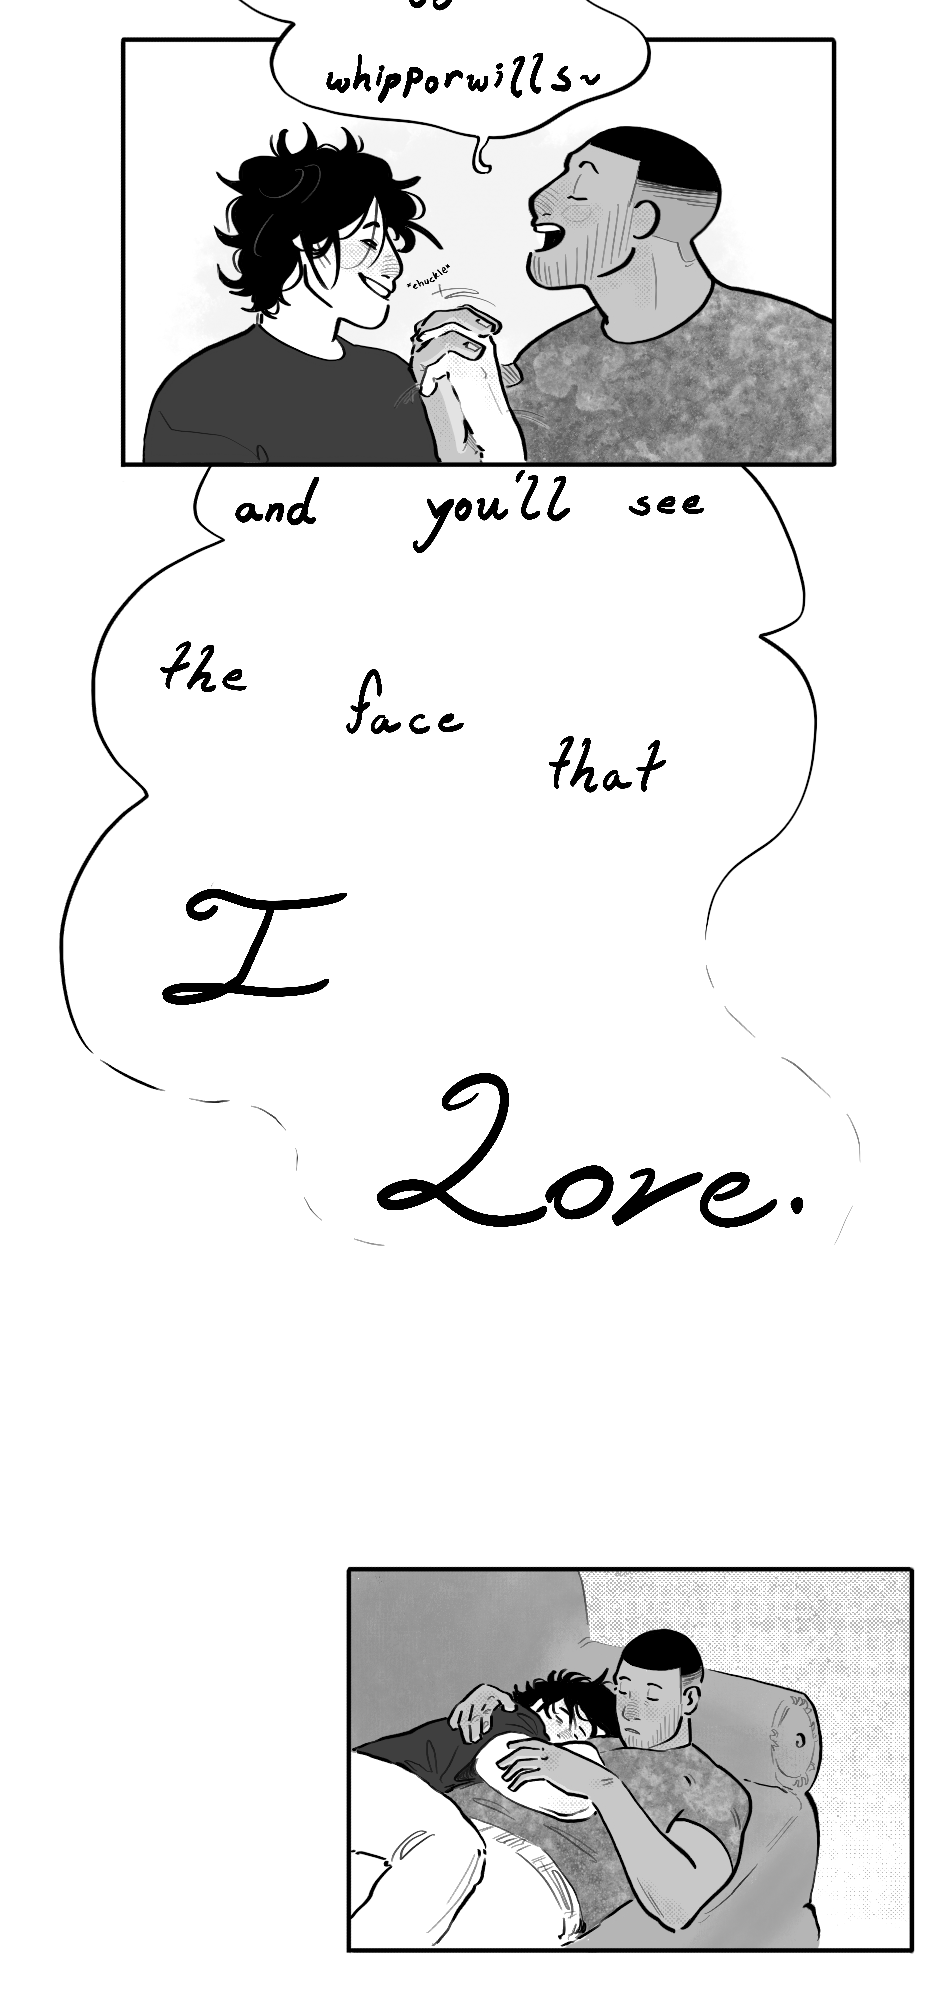 whipporwills~
*chuckle*
and you'll see
the face that
I
Love.